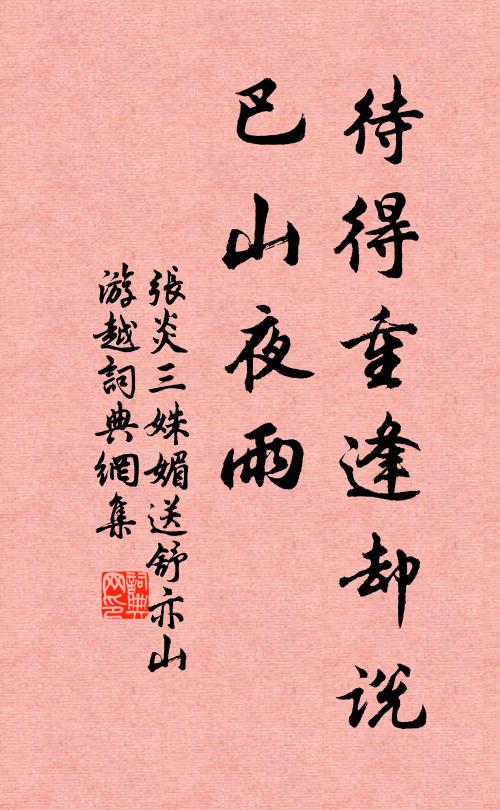 待得重逢却说
巴山夜雨
張炎三姝媚送舒亦山
游越詞典網集
詞典
网印